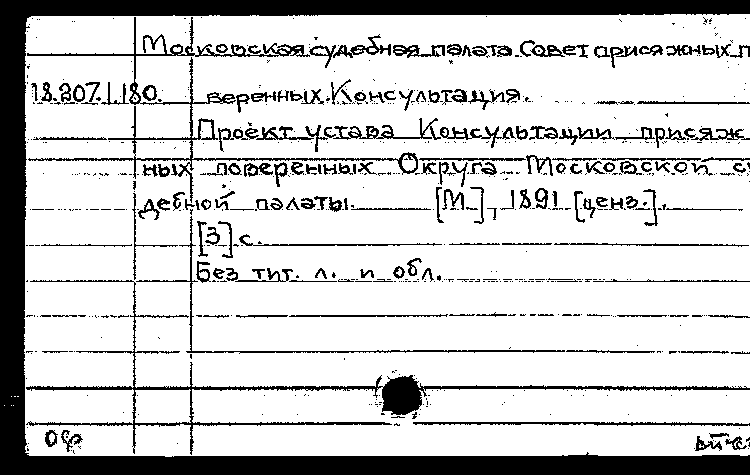 Московская судебная палата. Совет присяжных п
18.207.1.180. веренных. Консультация.
Проект устава Консультации присяж
ных поверенных Округа Московской су
дебной палаты. [М.], 1891 [ценз.].
[3] с.
Без тит. л. и обл.
Оф